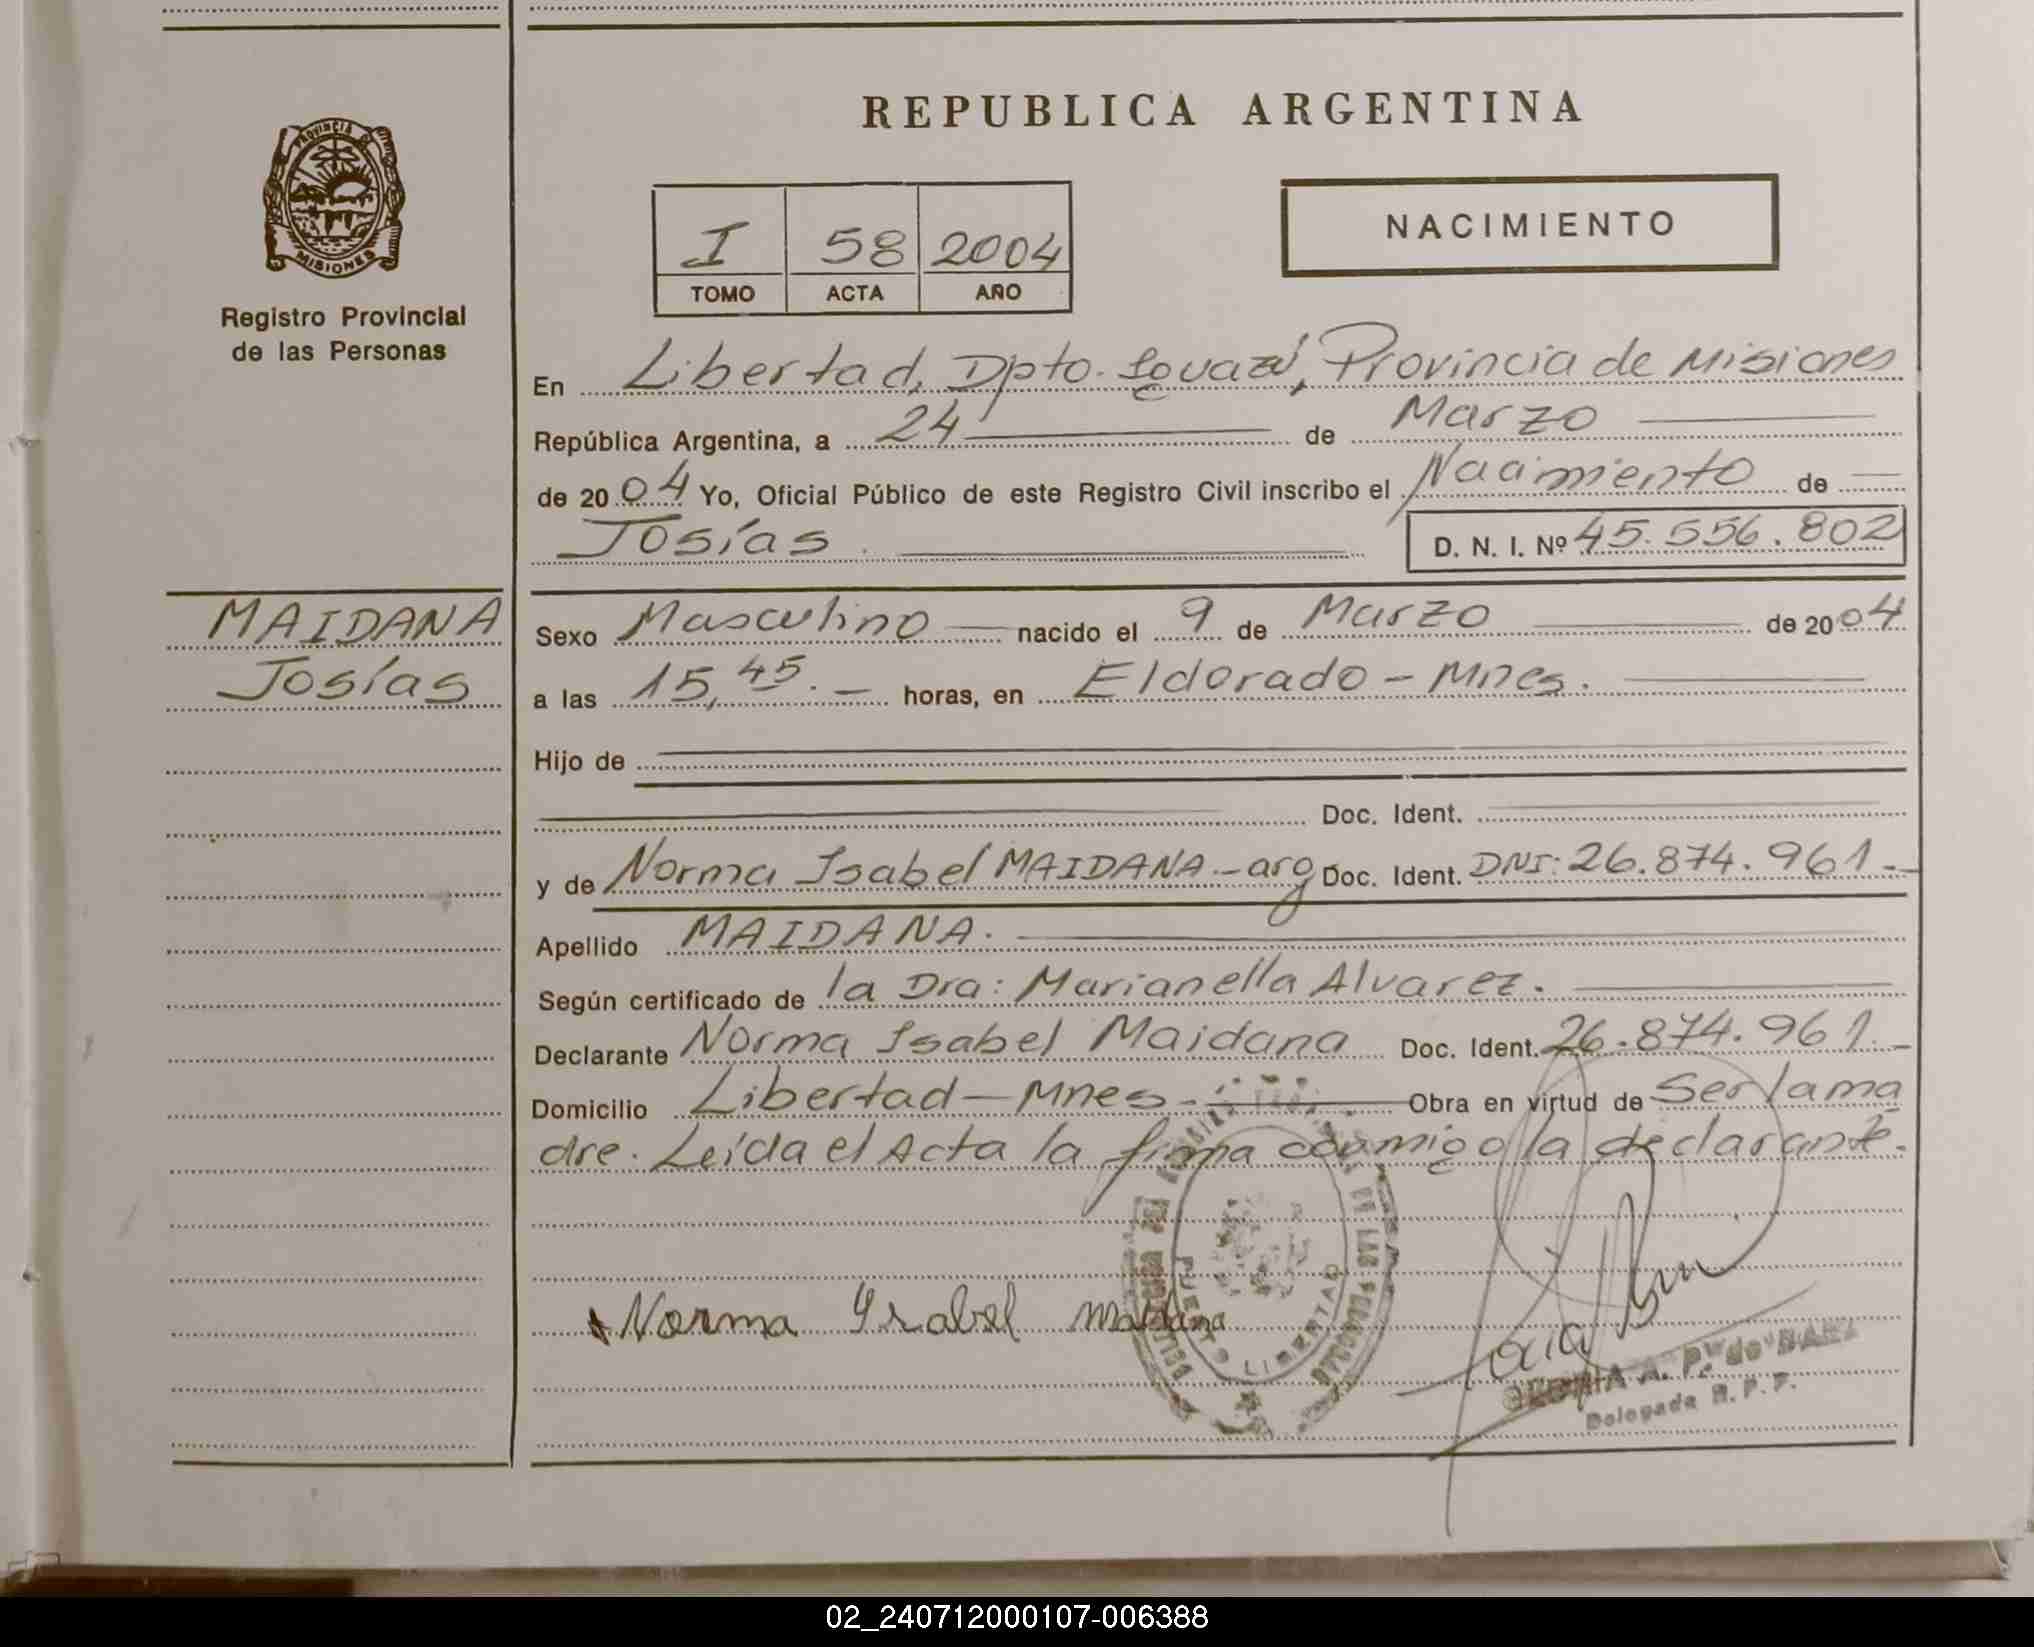 REPUBLICA ARGENTINA
PROVINCIA DE
MISIONES
Registro Provincial
de las Personas
I 58 2004
TOMO ACTA AÑO
NACIMIENTO
En Libertad, Dpto. Iguazú, Provincia de Misiones
República Argentina, a 24 de Marzo
de 2004 Yo, Oficial Público de este Registro Civil inscribo el Nacimiento de
Josías. D. N. I. Nº 45.556.802
MAIDANA
Josías
Sexo Masculino nacido el 9 de Marzo de 2004
a las 15,45.- horas, en Eldorado - Mnes.
Hijo de
Doc. Ident.
y de Norma Isabel MAIDANA - arg Doc. Ident. DNI: 26.874.961.-
Apellido MAIDANA.
Según certificado de la Dra: Marianella Alvarez.
Declarante Norma Isabel Maidana Doc. Ident. 26.874.961.-
Domicilio Libertad - Mnes - Obra en virtud de Ser la ma
dre. Leída el Acta la firma conmigo la declarante.
Norma Ysabel Maidana
PUERTO LIBERTAD
DE LAS
A. P. de
Delegada R. P. P.
02_240712000107-006388